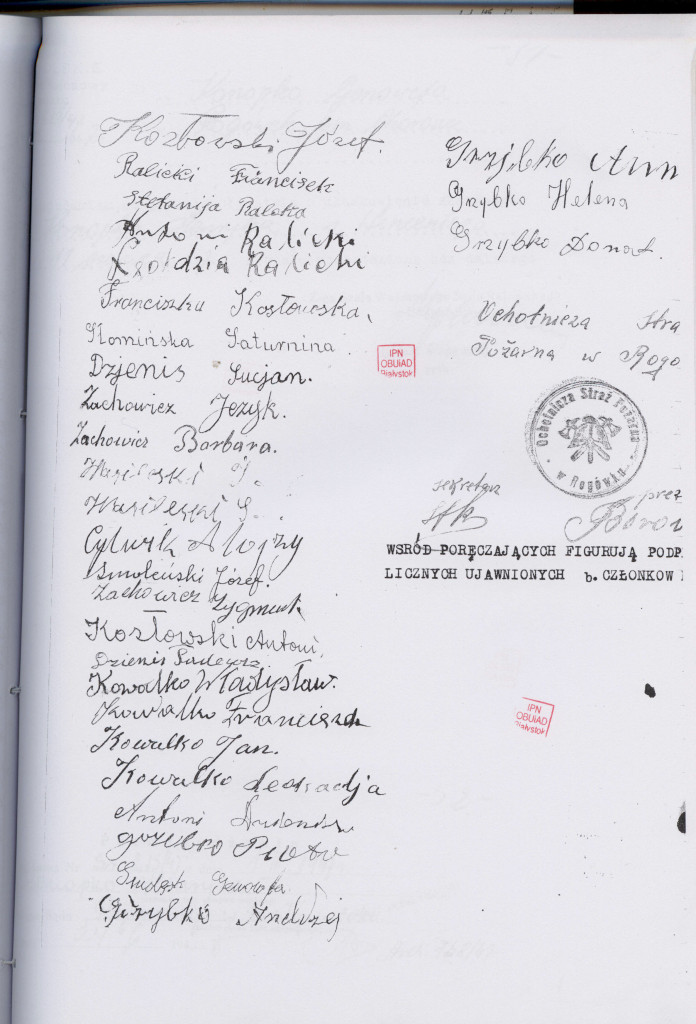 Kozłowski Józef.
Ralicki Francisek
Stefanija Ralcka
Antoni Ralicki
Ralicki
Franciszka Kosłowska,
Komińska Saturnina
Dzjenis Lucjan.
Zachowicz Jezyk.
Zachowicz Barbara.
Wasilewski S.
Wasilewski S.
Cylwik Alojzy
Smoleński Józef.
Zachowicz Zygmunt
Kozłowski Antoni,
Dzienis Tadeusz
Kowalko Władysław.
Kowalko Franciszek
Kowalko Jan.
Kowalko Leokadja
Antoni
Piotr
Genowefa
Grzybko Andrzej
Grzybko Ann
Grzybko Helena
Grzybko Donat.
Ochotnicza Stra
Pożarna w Rogo
IPN
OBUiAD
Białystok
Ochotnicza Straż Pożarna
w Rogówku
sekretarz
prez
WSRÓD PORĘCZAJĄCYCH FIGURUJĄ PODP
LICZNYCH UJAWNIONYCH b. CZŁONKOW
IPN
OBUiAD
Białystok